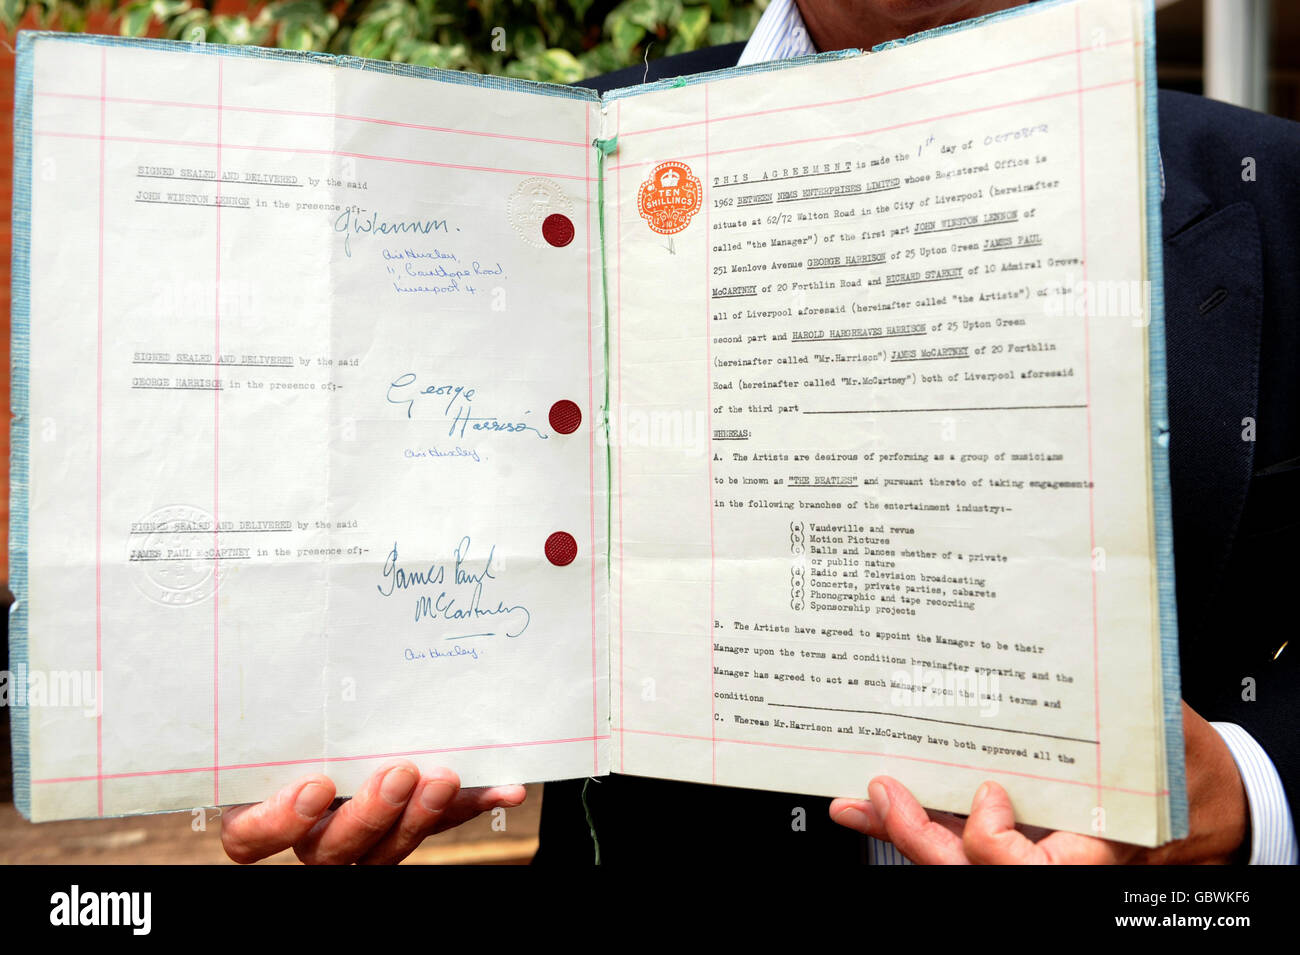 SIGNED SEALED AND DELIVERED by the said
JOHN WINSTON LENNON in the presence of;-
J W Lennon.
Huxley,
11, Road,
Liverpool 4.
SIGNED SEALED AND DELIVERED by the said
GEORGE HARRISON in the presence of;-
George
Harrison
Huxley,
SIGNED SEALED AND DELIVERED by the said
JAMES PAUL McCARTNEY in the presence of;-
James Paul
McCartney
Huxley.
TEN
SHILLINGS
THIS AGREEMENT is made the 1st day of OCTOBER
1962 BETWEEN NEMS ENTERPRISES LIMITED whose Registered Office is
situate at 62/72 Walton Road in the City of Liverpool (hereinafter
called "the Manager") of the first part JOHN WINSTON LENNON of
251 Menlove Avenue GEORGE HARRISON of 25 Upton Green JAMES PAUL
McCARTNEY of 20 Forthlin Road and RICHARD STARKEY of 10 Admiral Grove,
all of Liverpool aforesaid (hereinafter called "the Artists") of the
second part and HAROLD HARGREAVES HARRISON of 25 Upton Green
(hereinafter called "Mr.Harrison") JAMES McCARTNEY of 20 Forthlin
Road (hereinafter called "Mr.McCartney") both of Liverpool aforesaid
of the third part
WHEREAS:
A. The Artists are desirous of performing as a group of musicians
to be known as "THE BEATLES" and pursuant thereto of taking engagements
in the following branches of the entertainment industry:-
(a) Vaudeville and revue
(b) Motion Pictures
(c) Balls and Dances whether of a private
or public nature
(d) Radio and Television broadcasting
(e) Concerts, private parties, cabarets
(f) Phonographic and tape recording
(g) Sponsorship projects
B. The Artists have agreed to appoint the Manager to be their
Manager upon the terms and conditions hereinafter appearing and the
Manager has agreed to act as such Manager upon the said terms and
conditions
C. Whereas Mr.Harrison and Mr.McCartney have both approved all the
alamy
Image ID: GBWKF6
www.alamy.com